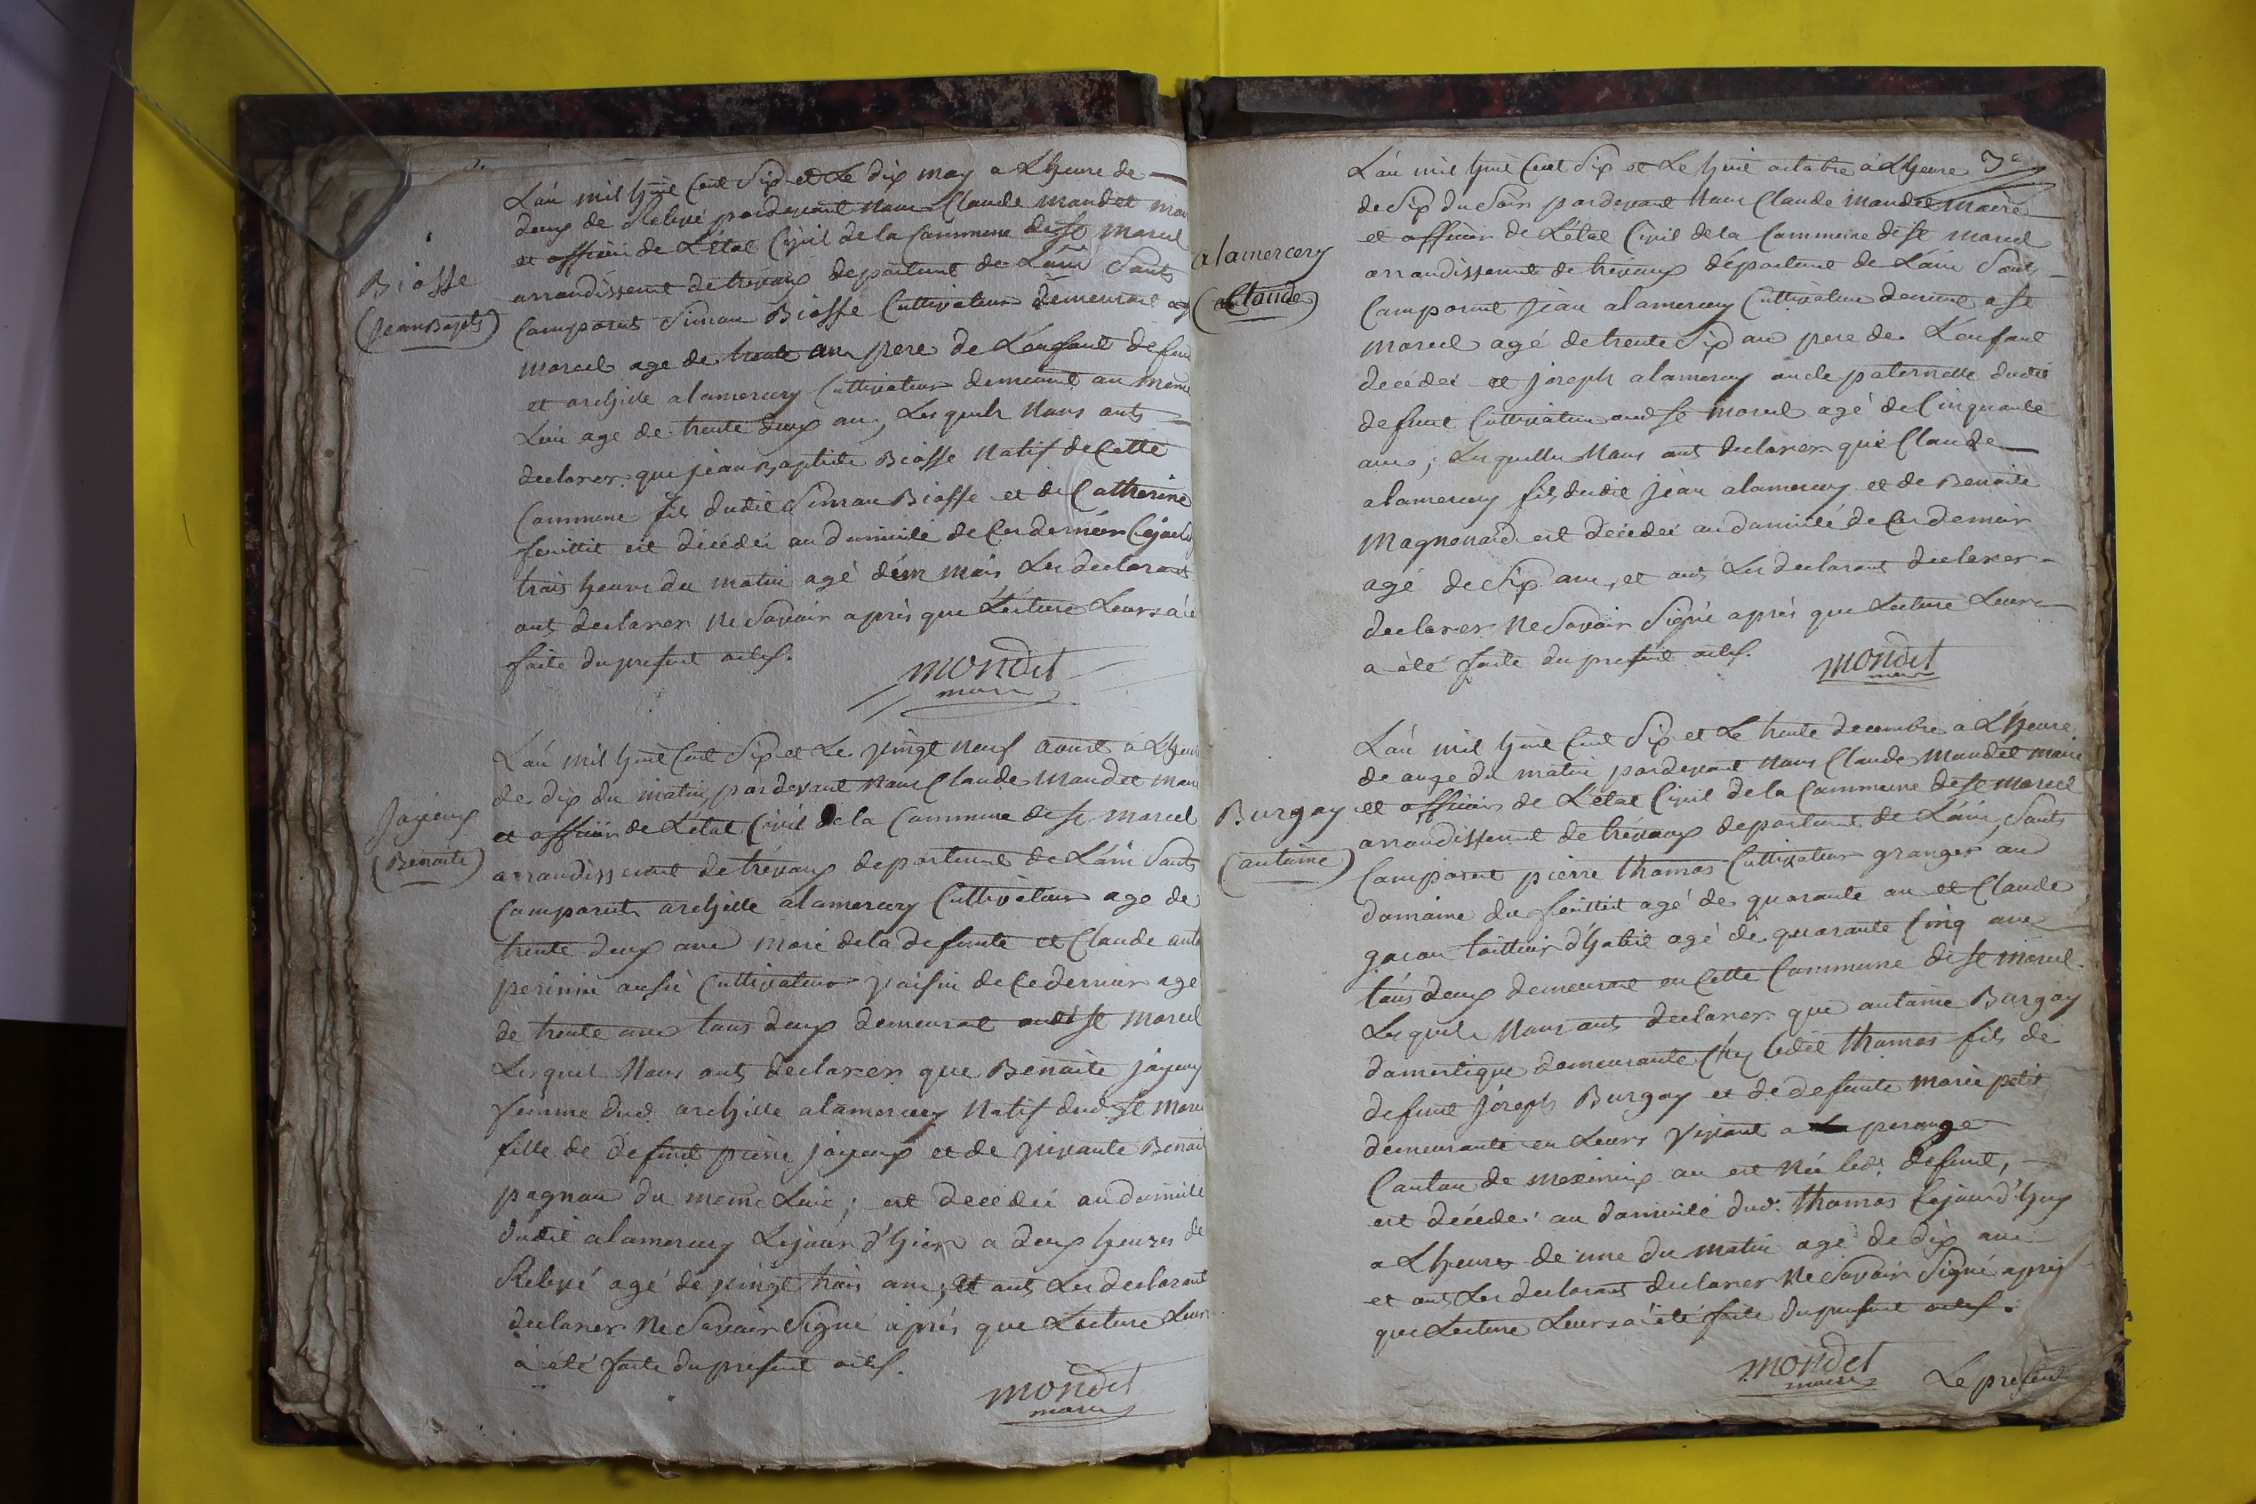 Biosse
(jean Bapts)
L'an mil huit Cent Six et Le dix may a L'heure de
deux de Relevé pardevant Nous Claude Mondet mair
et officier de L'état Civil de la Commune de St marcel
arrondissement de trévoux département de L'ain Sont
Comparut Simon Biosse Cultivateur demeurant a St
marcel age de trente an pere de L'enfant defunt
et archille alamercery Cultivateur demeurant au meme
Lieu age de trente deux an, Lesquels Nous onts
declarer que jean Baptiste Biosse Natif de Cette
Commune fils dudit Simon Biosse et de Catherine
feuillit est décédéz au domicile de Ces dernier Cejourd
trois heures du matin agé d'un mois Les declarants
onts declarer Ne Savoir après que Lecture Leurs a été
faite du present actes.
mondet
maire
Jayeux
(Benoite)
L'an mil huit Cent Six et Le vingt neuf aoust a L'heure
de dix du matin pardevant Nous Claude Mondet maire
et officier de L'état Civil de la Commune de St marcel
arrondissement de trévoux departement de L'ain Sonts
Comparuts archille alamercery Cultivateur age de
trente deux ans mari de la defunte et Claude ante
perinin aussi Cultivateur voisin de Ce dernier age
de trente ans tous deux demeurant audit St marcel
Lesquel Nous onts declarer que Benoite jayeux
femme dud. archille alamercery Natif dud. St marcel
fille de defunt pierre jayeux et de vivante Benoite
pagnon du meme Lieu; est decedéi au domicile
dudit alamercery Lejour d'hier a deux heures de
Relevé agé de vingt trois ans; et onts Les declarant
declarer Ne Savoir Signé après que Lecture Leurs
a été faite du présent actes.
mondet
maire
3e
alamercery
(Claude)
L'an mil huit Cent Six et Le huit octobre a L'heure
de Six du Soir pardevant Nous Claude Mondet Maire
et officier de L'état Civil de la Commune de St marcel
arrondissement de trévoux département de L'ain Sonts
Comparut jean alamercery Cultivateur demeurt a St
marcel agé de trente Six ans pere de L'enfant
decédéi et joseph alamercery oncle paternelle dudit
defunt Cultivateur aud. St marcel agé de Cinquante
ans; Lesquelles Nous ont declarer que Claude
alamercery fils dudit jean alamercery et de Benoite
Magnonard est décédéi au domicile de Ces dernier
agé de Six ans, et onts Les declarant declarer
declarer Ne Savoir Signé après que Lecture Leurs
a été faite du présent actes.
mondet
maire
Burgay
(antoine)
L'an mil huit Cent Six et Le trente decembre a L'heure
de onze du matin pardevant Nous Claude Mondet maire
et officier de L'état Civil de la Commune de St marcel
arrondissement de trévoux departement de L'ain, Sonts
Comparut pierre thomas Cultivateur granger au
domaine du feuillit agé de quarante an et Claude
gacon tailleur d'habit agé de quarante Cinq ans
tous deux demeurant en Cette Commune de St marcel.
Lesquels Nous onts declarer que antoine Burgay
domestique demeurante Chez ledit thomas fils de
defunt joseph Burgay et de defunte marie petit
demeurante en Leurs vivant a La perouge
Canton de meximieux ou est Née led. defunt,
est décédé au domicile dud. thomas Cejourd'huy
a L'heures de une du matin agé de dix ans
et onts Les declarant declarer Ne Savoir Signé après
que Lecture Leurs a été faite du present actes.
mondet
maire
Le present